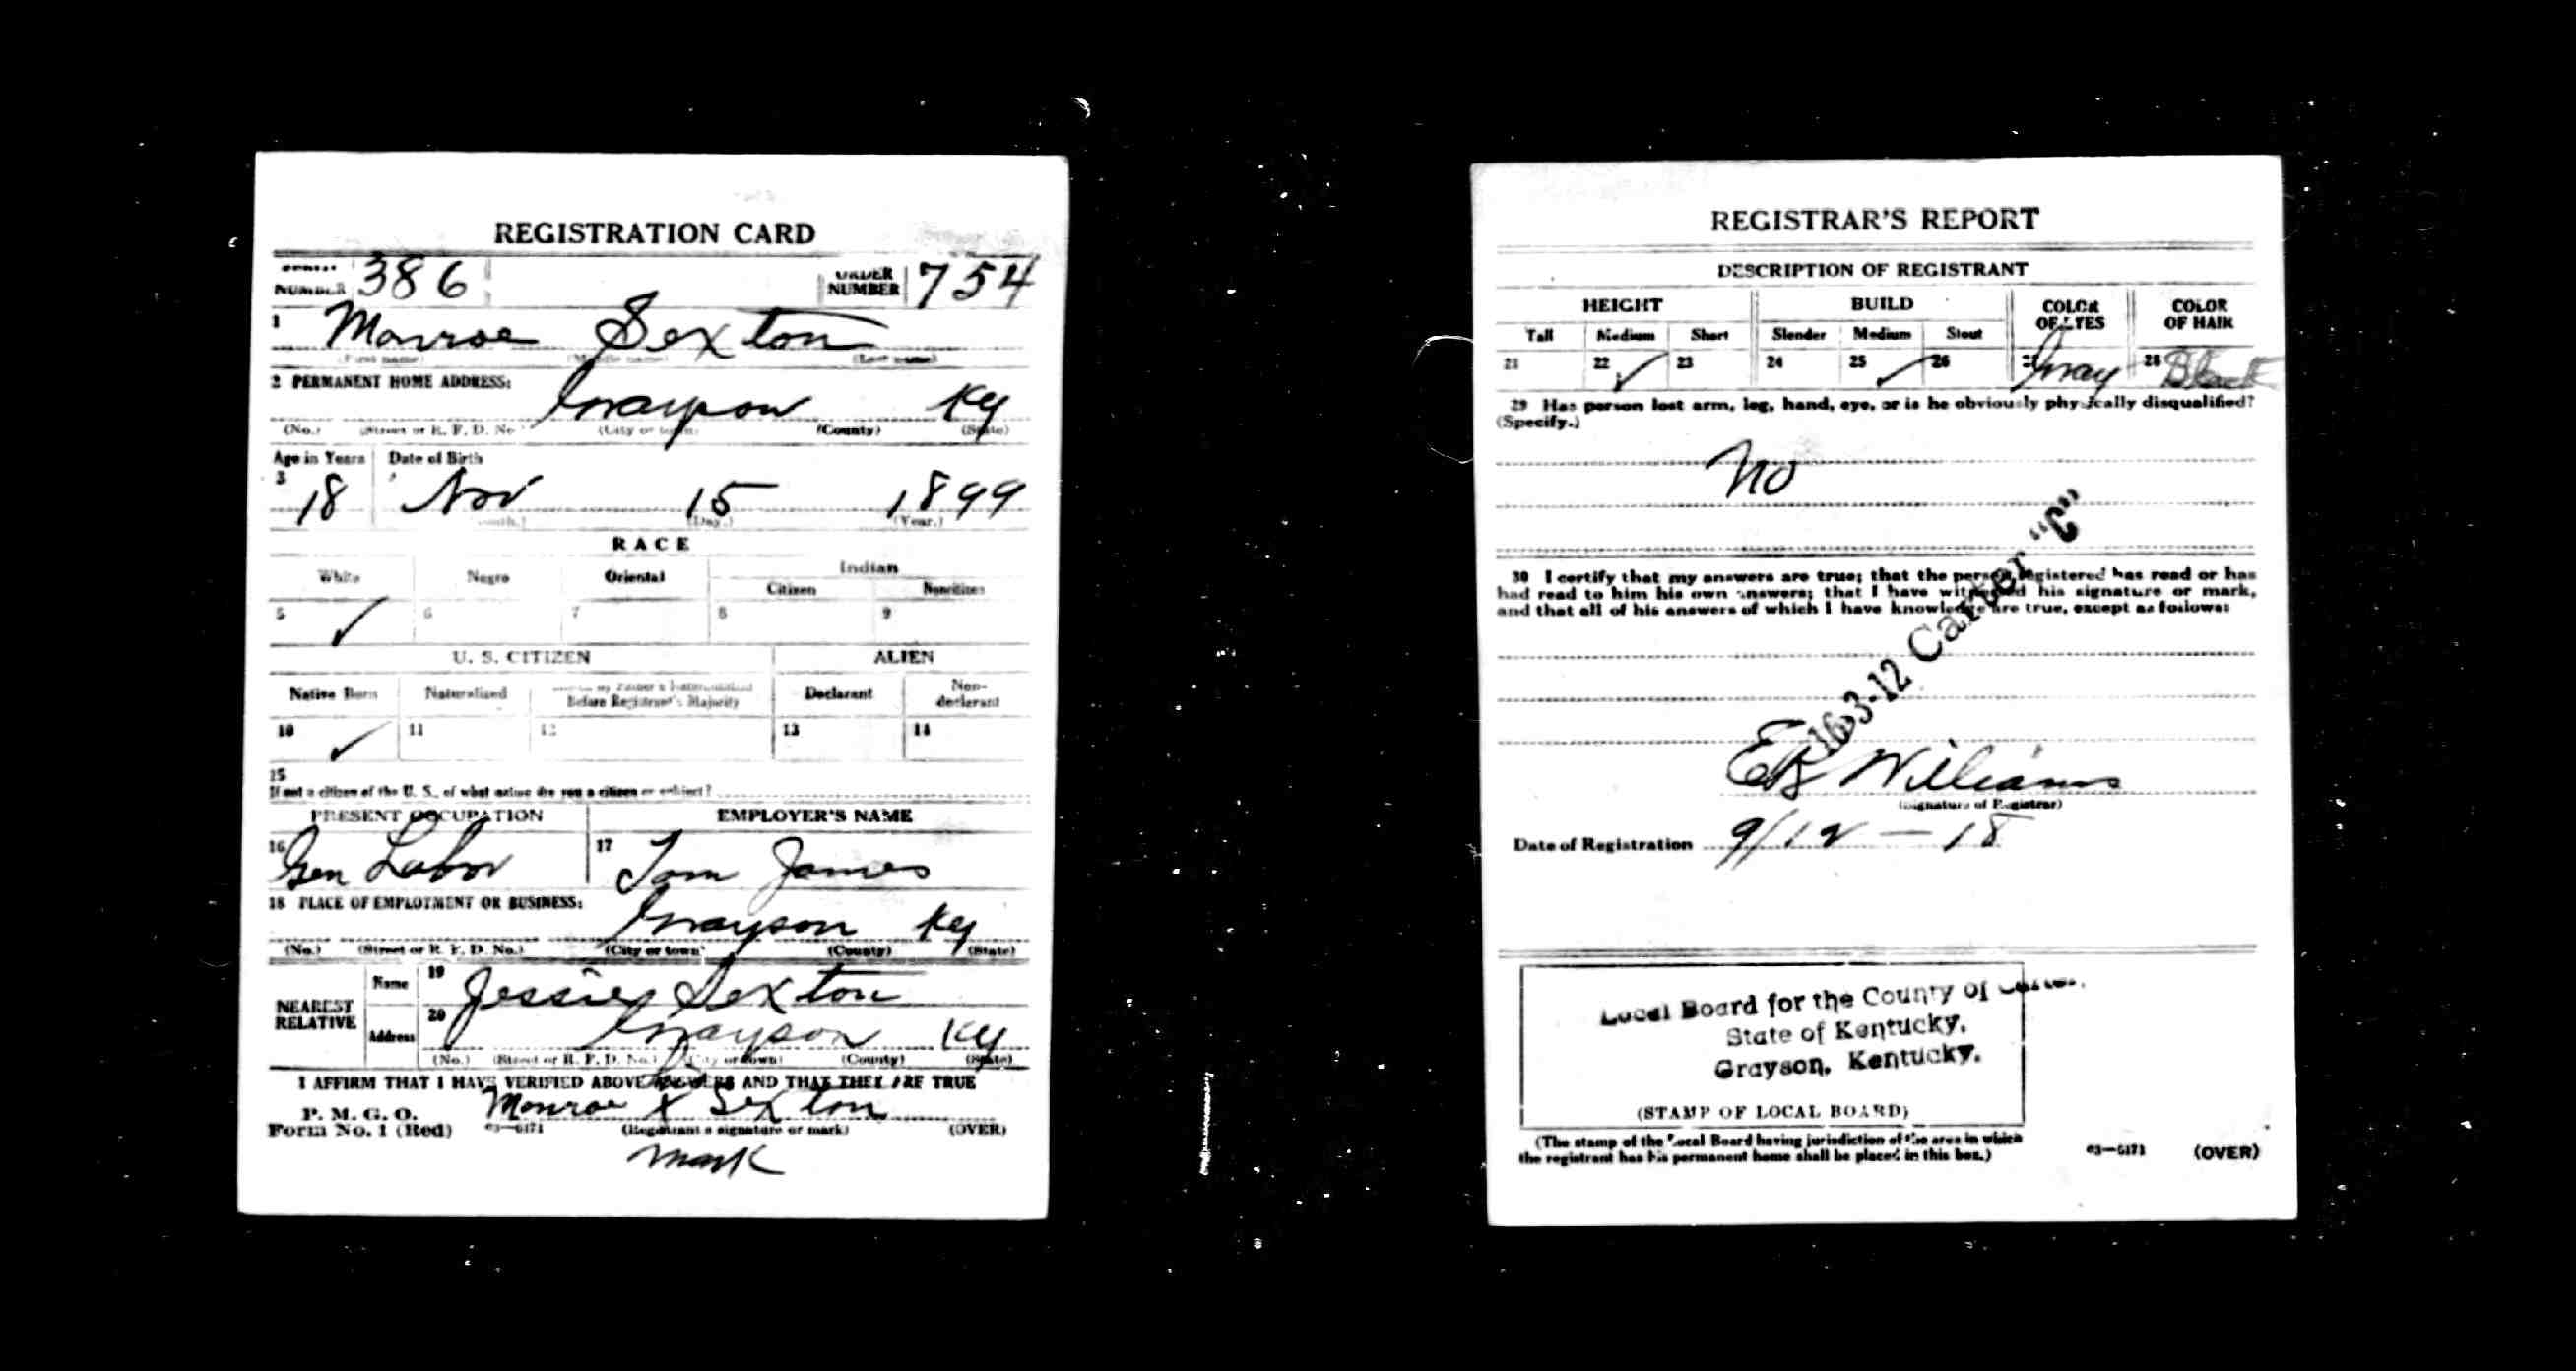 REGISTRATION CARD
NUMBER 386 ORDER NUMBER 754
1 Monroe Sexton
(First name) (Middle name) (Last name)
2 PERMANENT HOME ADDRESS:
Grayson Ky
(No.) (Street or R. F. D. No (City or town) (County) (State)
Age in Years Date of Birth
3 18 Nov 15 1899
(Day.) (Year.)
RACE
White Negro Oriental Indian
Citizen Noncitizen
5 ✓ 6 7 8 9
U. S. CITIZEN ALIEN
Native Born Naturalized Before Registrant's Majority Declarant Non-declarant
10 ✓ 11 12 13 14
15
If not a citizen of the U. S., of what nation are you a citizen or subject?
PRESENT OCCUPATION EMPLOYER'S NAME
16 Gen Labor 17 Tom James
18 PLACE OF EMPLOYMENT OR BUSINESS:
Grayson Ky
(No.) (Street or R. F. D. No.) (City or town) (County) (State)
NEAREST RELATIVE Name 19 Jessie Sexton
Address 20 Grayson Ky
(No.) (Street or R. F. D. No.) (City or town) (County) (State)
I AFFIRM THAT I HAVE VERIFIED ABOVE ANSWERS AND THAT THEY ARE TRUE
P. M. G. O.
Form No. 1 (Red) 03—6171 Monroe X Sexton
(Registrant's signature or mark) (OVER)
mark
REGISTRAR'S REPORT
DESCRIPTION OF REGISTRANT
HEIGHT BUILD COLOR OF EYES COLOR OF HAIR
Tall Medium Short Slender Medium Stout
21 22 ✓ 23 24 25 ✓ 26 Gray 28 Black
29 Has person lost arm, leg, hand, eye, or is he obviously physically disqualified?
(Specify.)
No
30 I certify that my answers are true; that the person registered has read or has
had read to him his own answers; that I have witnessed his signature or mark,
and that all of his answers of which I have knowledge are true, except as follows:
16-3-12 Carter "C"
EB Williams
(Signature of Registrar)
Date of Registration 9/12 — 18
Local Board for the County of Carter,
State of Kentucky,
Grayson, Kentucky.
(STAMP OF LOCAL BOARD)
(The stamp of the Local Board having jurisdiction of the area in which
the registrant has his permanent home shall be placed in this box.)
03—6171 (OVER)